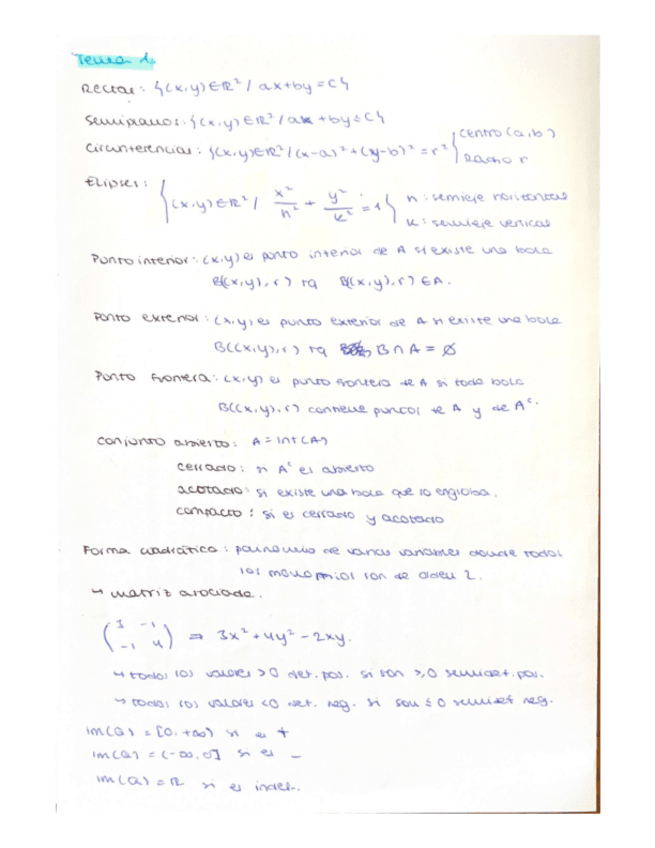 Tema 1.
Rectas: {(x,y)∈ℝ²/ ax+by=c}
Semiplanos: {(x,y)∈ℝ²/ax+by≤c}
Circunferencias: {(x,y)∈ℝ²/(x-a)²+(y-b)²=r² { centro (a,b)
Radio r
Elipses: {(x,y)∈ℝ²/ x²/h² + y²/k² = 1 { h: semieje horizontal
k: semieje vertical
Punto interior: (x,y) es punto interior de A si existe una bola
B((x,y),r) tq B((x,y),r) ∈ A.
Punto exterior: (x,y) es punto exterior de A si existe una bola
B((x,y),r) tq B∩A = ∅
Punto frontera: (x,y) es punto frontera de A si toda bola
B((x,y),r) contiene puntos de A y de Aᶜ.
Conjunto abierto: A=int(A)
cerrado: si Aᶜ es abierto
acotado: si existe una bola que lo engloba.
compacto: si es cerrado y acotado
Forma cuadrática: polinomio de varias variables donde todos
los monomios son de orden 2.
↪ matriz asociada.
(3 -1
-1 4) ⇒ 3x²+4y²-2xy.
↪ todos los valores >0 def. pos. si son ≥0 semidef. pos.
↪ todos los valores <0 def. neg. si son ≤0 semidef neg.
im(Q) = [0,+∞) si es +
im(Q) = (-∞,0] si es −
im(Q) = ℝ si es indef.